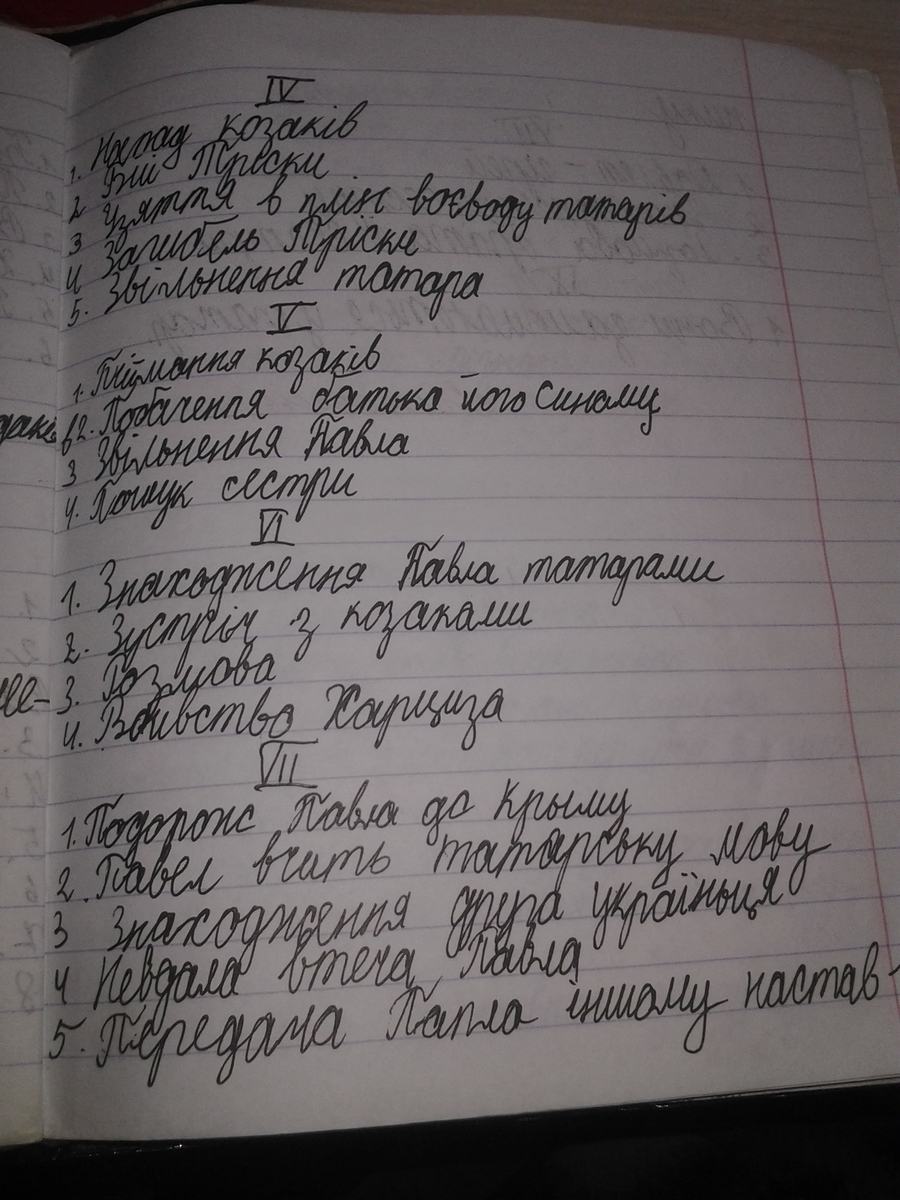 IV
1. Напад козаків
2 Бій Тріски
3 Узяття в плін воєводу татарів
4 Загибель Тріски
5. Звільнення татара
V
1. Піймання козаків
2. Побачення батька його синому
3 Звільнення Павла
4. Пошук сестри
VI
1. Знаходження Павла татарами
2. Зустріч з козаками
3. Розмова
4. Вбивство Харциза
VII
1. Подорож Павла до Крыму
2. Павел вчить татарську мову
3 Знаходження друга українця
4 Невдала втеча Павла
5. Передача Павла іншому настав-